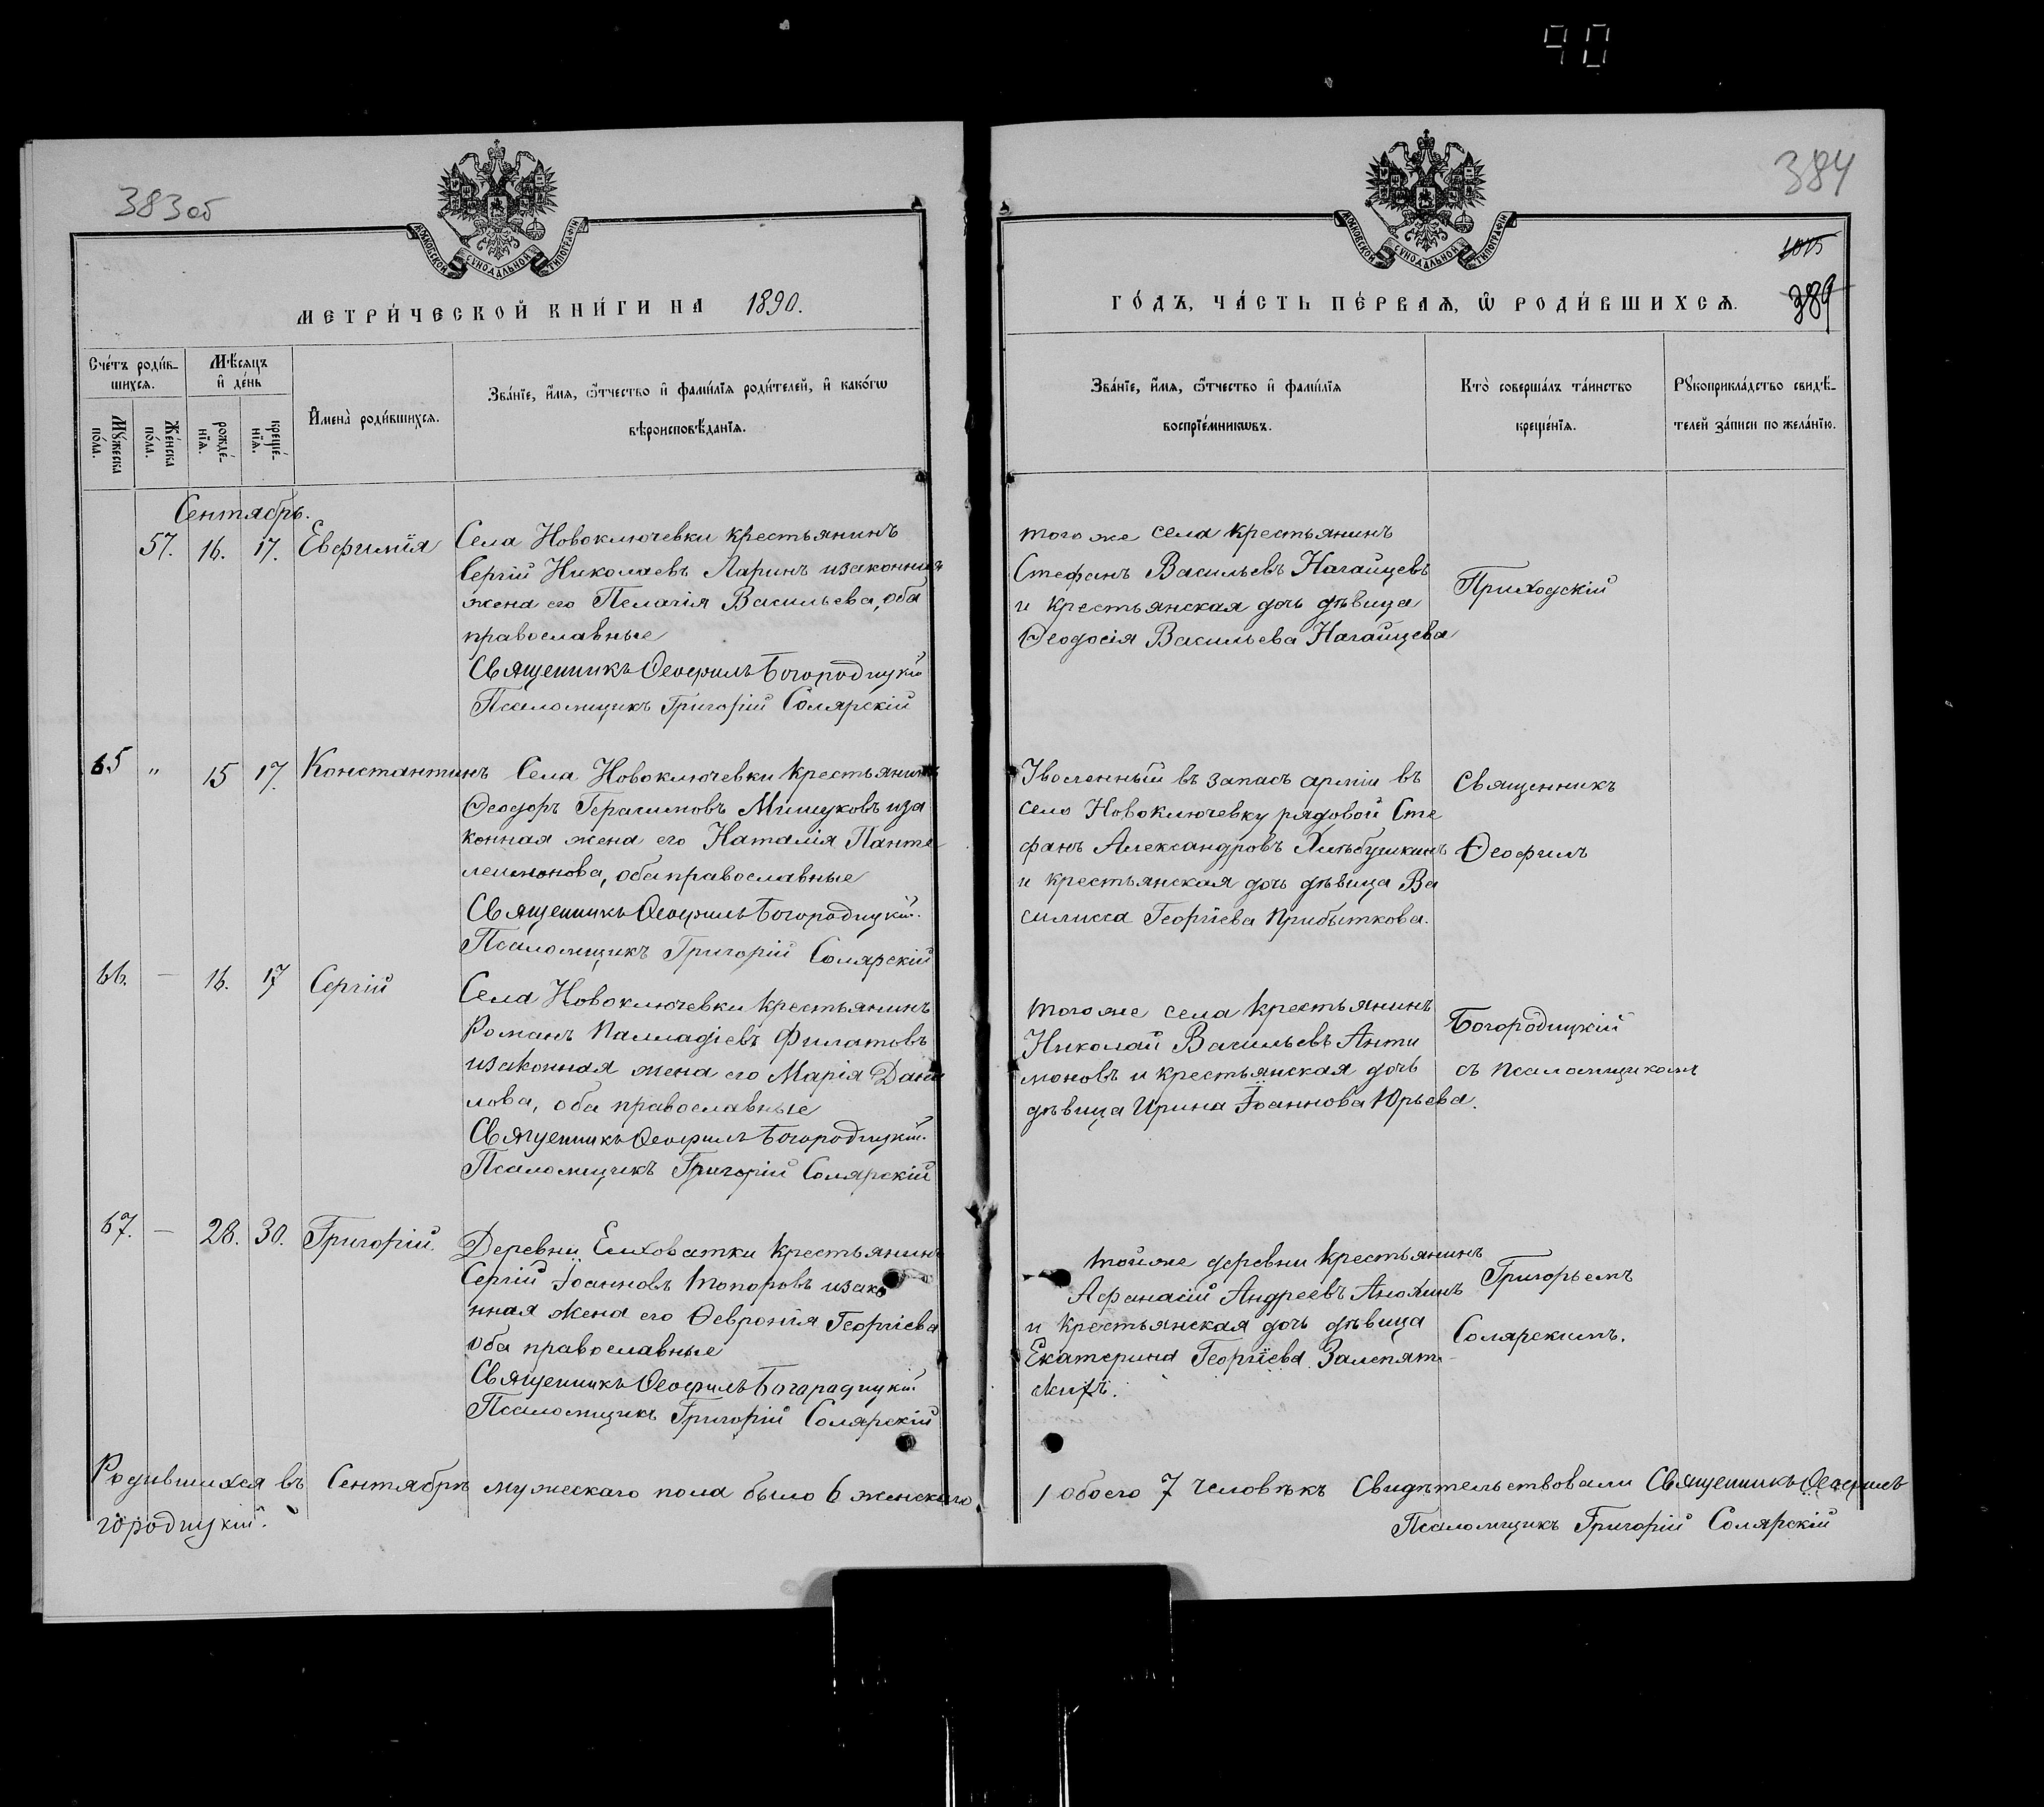 90
383об
384
МОСКОВСКОЙ СУНОДАЛЬНОЙ ТИПОГРАФІИ
МОСКОВСКОЙ СУНОДАЛЬНОЙ ТИПОГРАФІИ
389
МЕТРИ́ЧЕСКОЙ КНИ́ГИ НА 1890.
ГО́ДЪ, ЧА́СТЬ ПЕ́РВАѦ, Ѡ҆ РОДИ́ВШИХСѦ.
Сче́тъ роди́в-
шихсѧ.
Мꙋ́жеска
по́ла.
Же́нска
по́ла.
Мѣ́сѧцъ
и҆ де́нь
рожде́-
нїѧ.
креще́-
нїѧ.
И҆мена̀ роди́вшихсѧ.
Зва́нїе, и҆́мѧ, ѻ҆́тчество и҆ фами́лїѧ роди́телей, и҆ како́гѡ
вѣроисповѣ́данїѧ.
Зва́нїе, и҆́мѧ, ѻ҆́тчество и҆ фами́лїѧ
воспрїе́мникѡвъ.
Кто̀ соверша́лъ та́инство
креще́нїѧ.
Рꙋкоприкла́дство свидѣ́-
телей за́писи по жела́нїю.
Сентябрь.
57. 16. 17. Евфимія
Села Новоключевки крестьянинъ
Сергій Николаевъ Ларинъ изаконная
жена его Пелагія Васильева, оба
православные
Священникъ Ѳеофилъ Богородицкій
Псаломщикъ Григорій Солярскій
того же села крестьянинъ
Стефанъ Васильевъ Нагайцевъ
и крестьянская дочь дѣвица
Ѳеодосія Васильева Нагайцева
Приходскій
65 " 15 17. Константинъ
Села Новоключевки крестьянинъ
Ѳеодоръ Герасимовъ Мишуковъ иза
конная жена его Наталія Панте
леимонова, оба православные
Священникъ Ѳеофилъ Богородицкій.
Псаломщикъ Григорій Солярскій
Уволенный въ запасъ арміи въ
село Новоключевку рядовой Сте
фанъ Александровъ Хлѣбушкинъ
и крестьянская дочь дѣвица Ва
силисса Георгіева Прибыткова.
Священникъ
Ѳеофилъ
66. — 16. 17 Сергій
Села Новоключевки крестьянинъ
Романъ Палладіевъ Филатовъ
изаконная жена его Марія Дани
лова, оба православные
Священникъ Ѳеофилъ Богородицкій.
Псаломщикъ Григорій Солярскій
того же села крестьянинъ
Николай Васильевъ Анти
моновъ и крестьянская дочь
дѣвица Ирина Іоаннова Юрьева.
Богородицкій
съ псаломщикомъ
67. — 28. 30. Григорій.
Деревни Елховатки крестьянинъ
Сергій Іоанновъ Топоровъ изако
нная жена его Ѳевронія Георгіева
оба православные
Священникъ Ѳеофилъ Богарадицкій.
Псаломщикъ Григорій Солярскій
тойже деревни крестьянинъ
Афанасій Андреевъ Анохинъ
и крестьянская дочь дѣвица
Екатерина Георгіева
Григорьемъ
Солярскимъ.
Родившихся въ Сентябрѣ мужескаго пола было 6 женскаго
1 обоего 7 человѣкъ Свидѣтельствовали Священникъ Ѳеофилъ
городицкій.
Псаломщикъ Григорій Солярскій